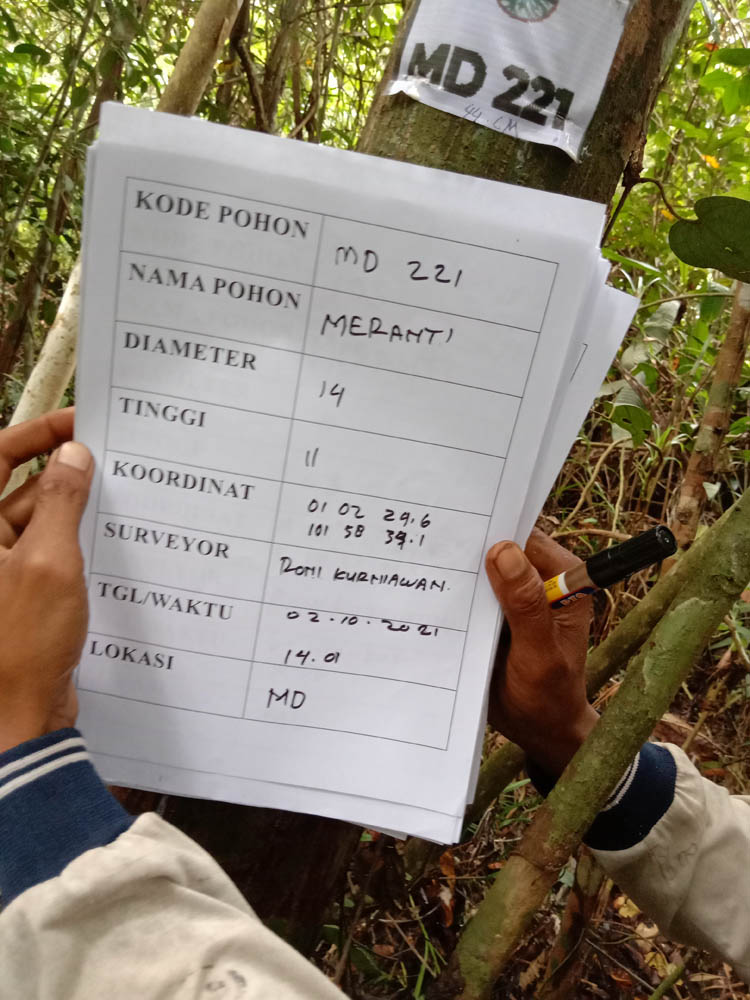 MD 221
44 CM
KODE POHON MD 221
NAMA POHON MERANTI
DIAMETER 14
TINGGI 11
KOORDINAT 01 02 29.6
101 58 39.1
SURVEYOR ROMI KURNIAWAN.
TGL/WAKTU 02.10.2021
14.01
LOKASI MD